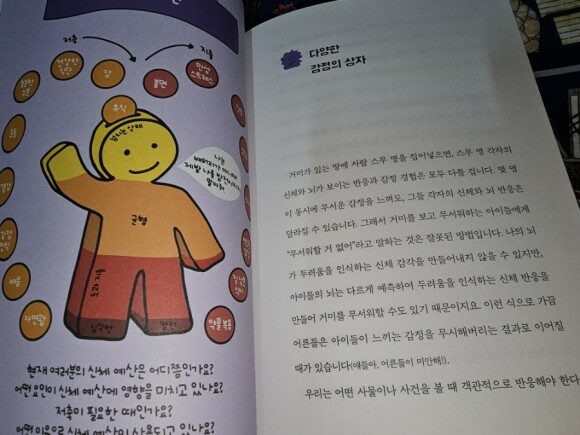 저축
지출
건강한
식단
잠
불면
만성
스트레스
휴식
넘치는 상태
나는
배터리가 아니에요
균형
초과 지출
심각한
배움
자연광
약물 복용
현재 여러분의 신체 예산은 어디쯤인가요?
어떤 요인이 신체 예산에 영향을 미치고 있나요?
저축이 필요한 때인가요?
다양한
감정의 상자
거미가 있는 방에 사람 스무 명을 집어넣으면, 스무 명 각자의
신체와 뇌가 보이는 반응과 감정 경험은 모두 다를 겁니다. 몇 명
이 동시에 무서운 감정을 느껴도, 그들 각자의 신체와 뇌 반응은
달라질 수 있습니다. 그래서 거미를 보고 무서워하는 아이들에게
“무서워할 거 없어”라고 말하는 것은 잘못된 방법입니다. 나의 뇌
가 두려움을 인식하는 신체 감각을 만들어내지 않을 수 있지만,
아이들의 뇌는 다르게 예측하여 두려움을 인식하는 신체 반응을
만들어 거미를 무서워할 수도 있기 때문이지요. 이런 식으로 가끔
어른들은 아이들이 느끼는 감정을 무시해버리는 결과로 이어질
때가 있습니다(얘들아, 어른들이 미안해!).
우리는 어떤 사물이나 사건을 볼 때 객관적으로 반응해야 한다